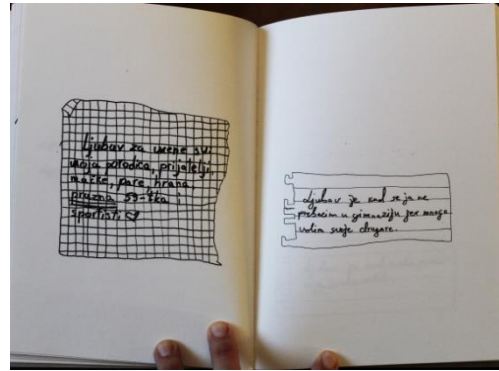 Ljubav za mene su
moja porodica, prijatelji,
mačke, pare, hrana,
prazna 59-tka i
sportisti
Ljubav je kad se ja ne
prebacim u gimnaziju jer mnogo
volim svoje drugare.